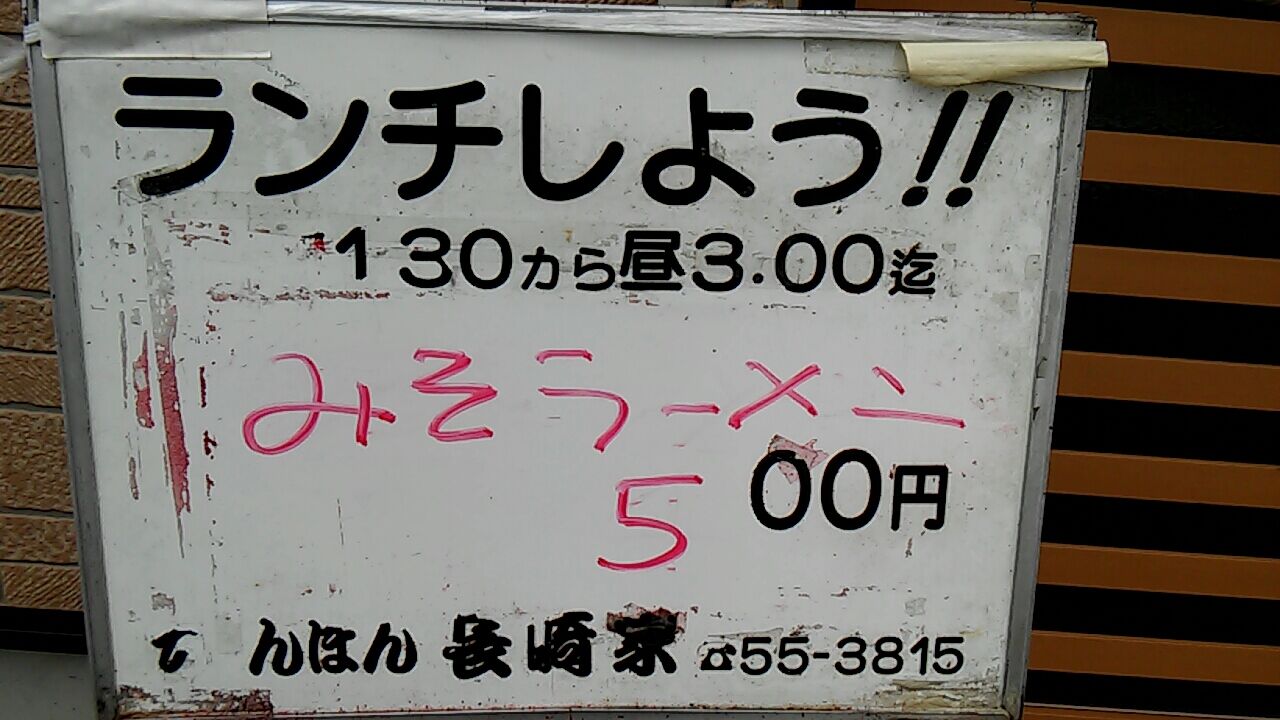 ランチしよう!!
130から昼3.00迄
みそラーメン
500円
て んほん 長崎家 ☎55-3815